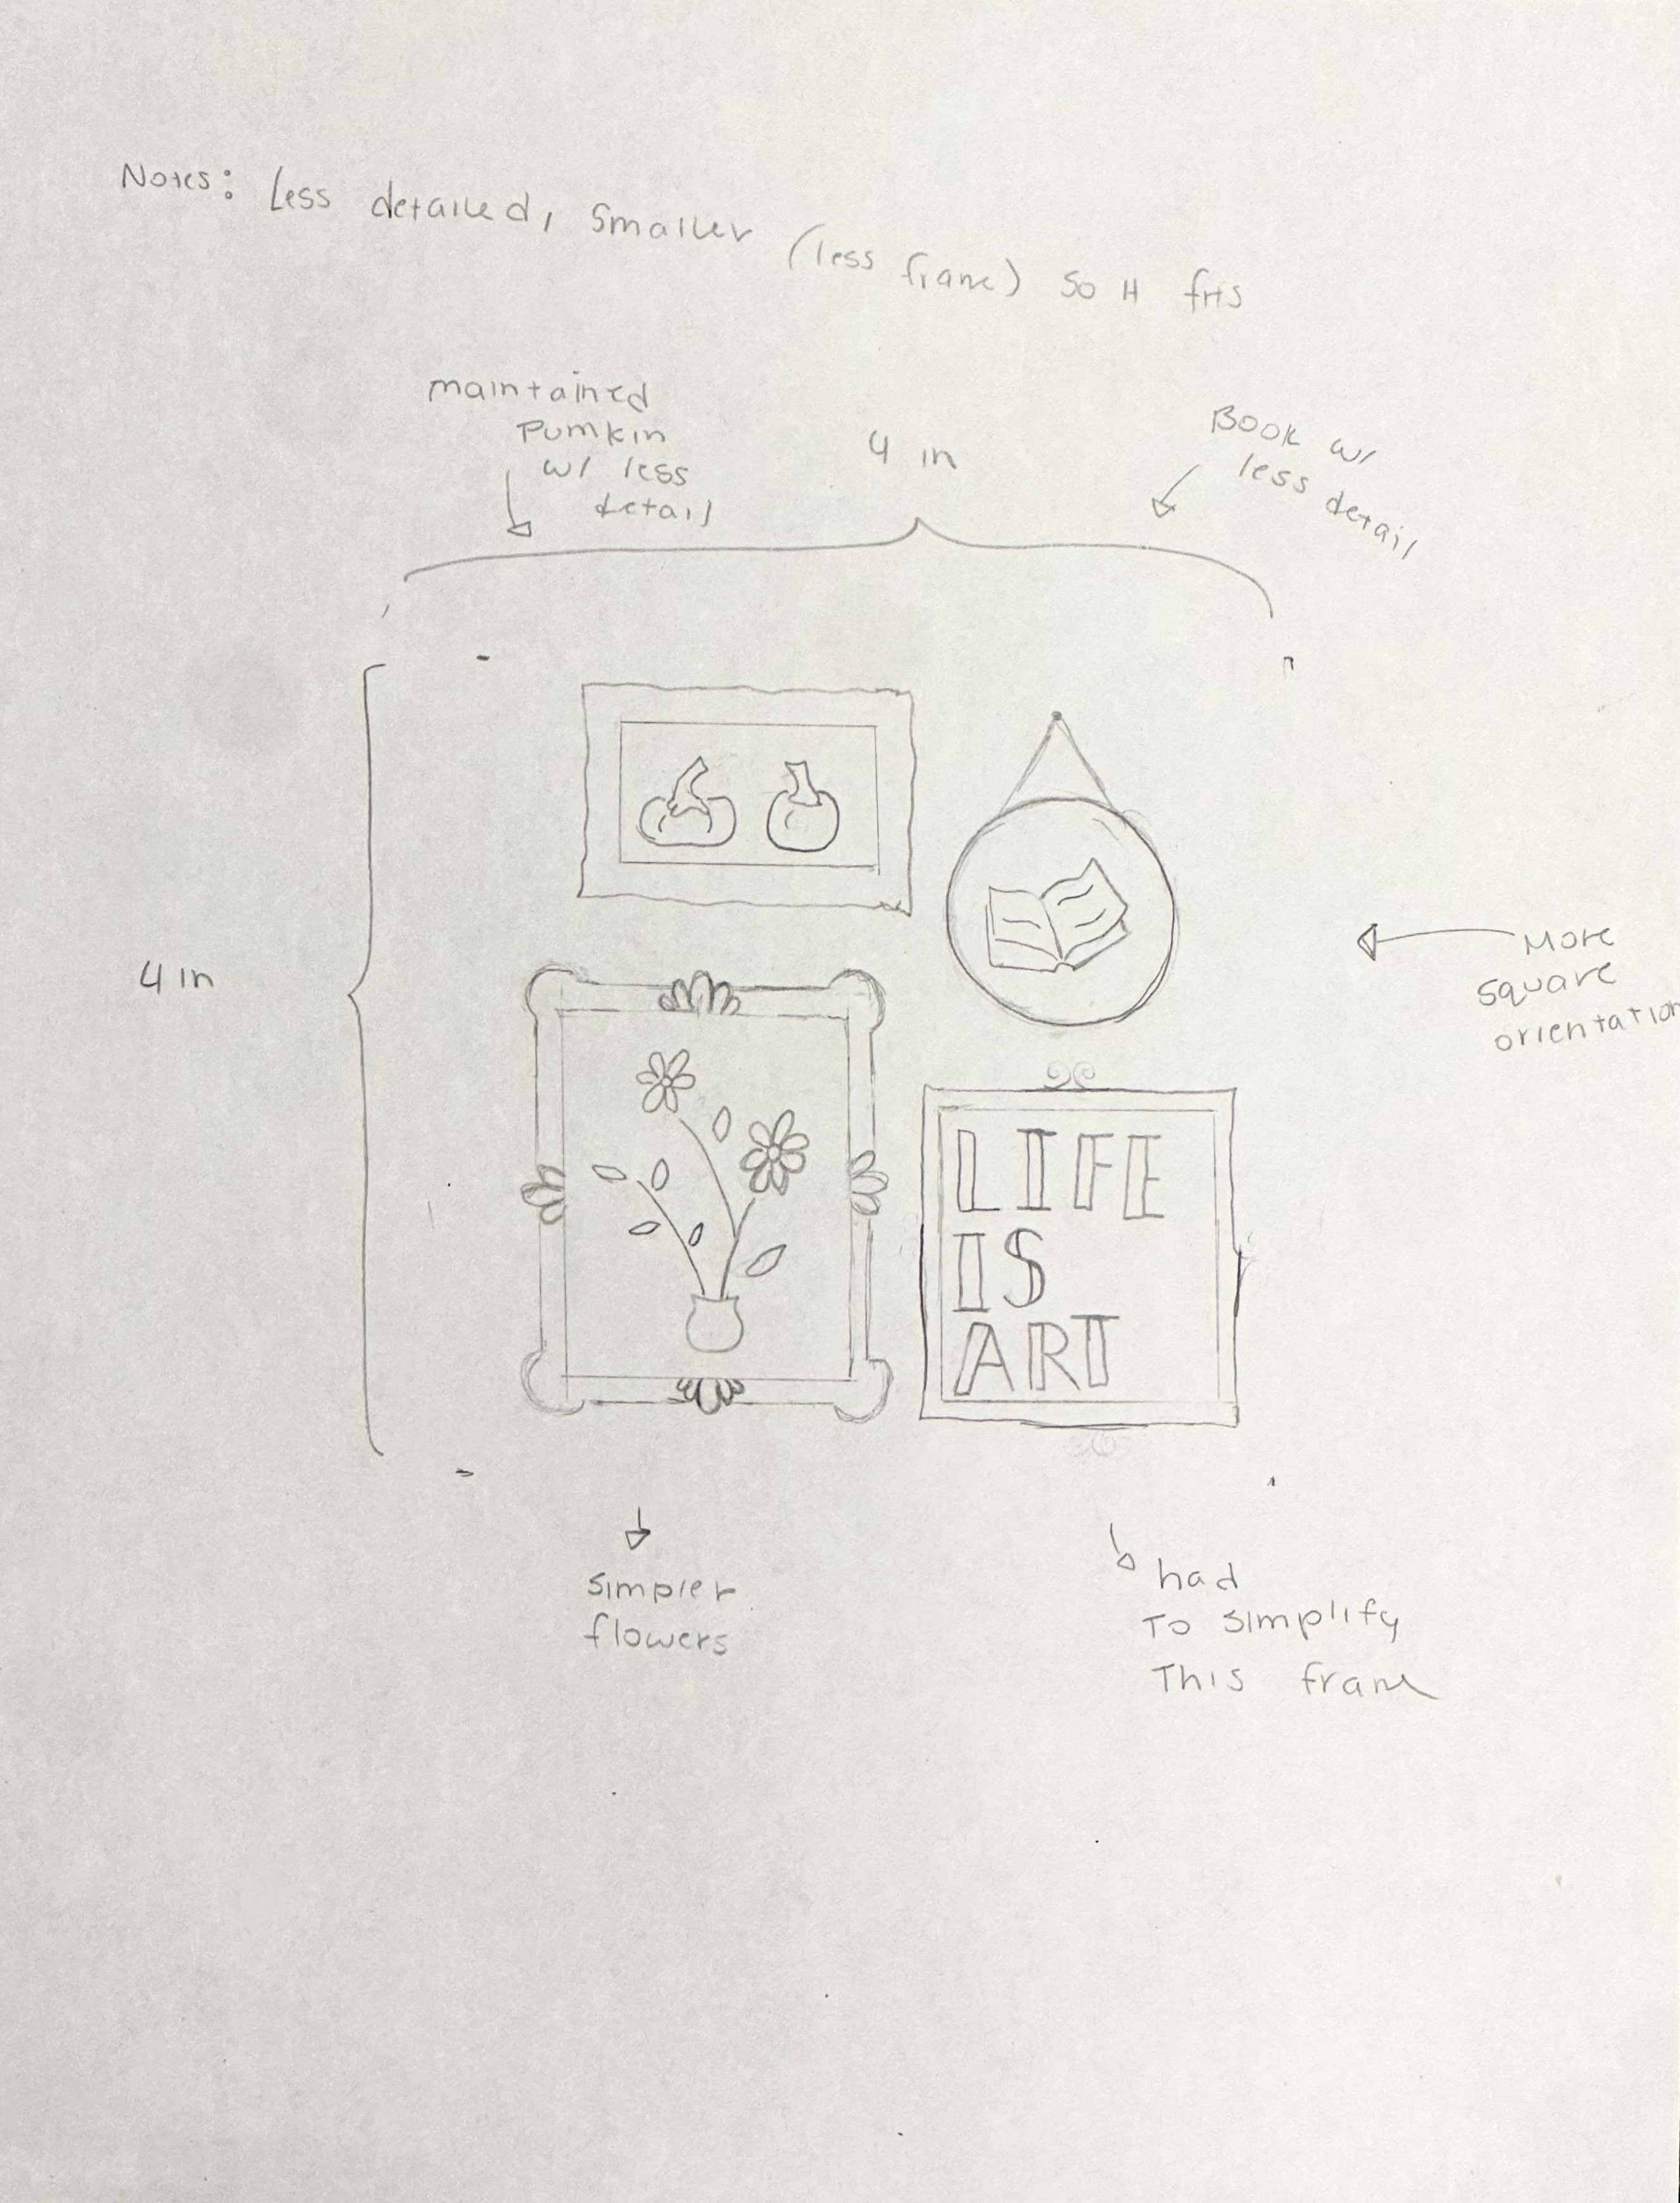 Notes: Less detailed, smaller (less frame) so it fits
maintained
Pumkin
w/ less
detail
4 in
Book w/
less detail
4 in
More
square
orientation
LIFE
IS
ART
simpler
flowers
had
To simplify
This frame